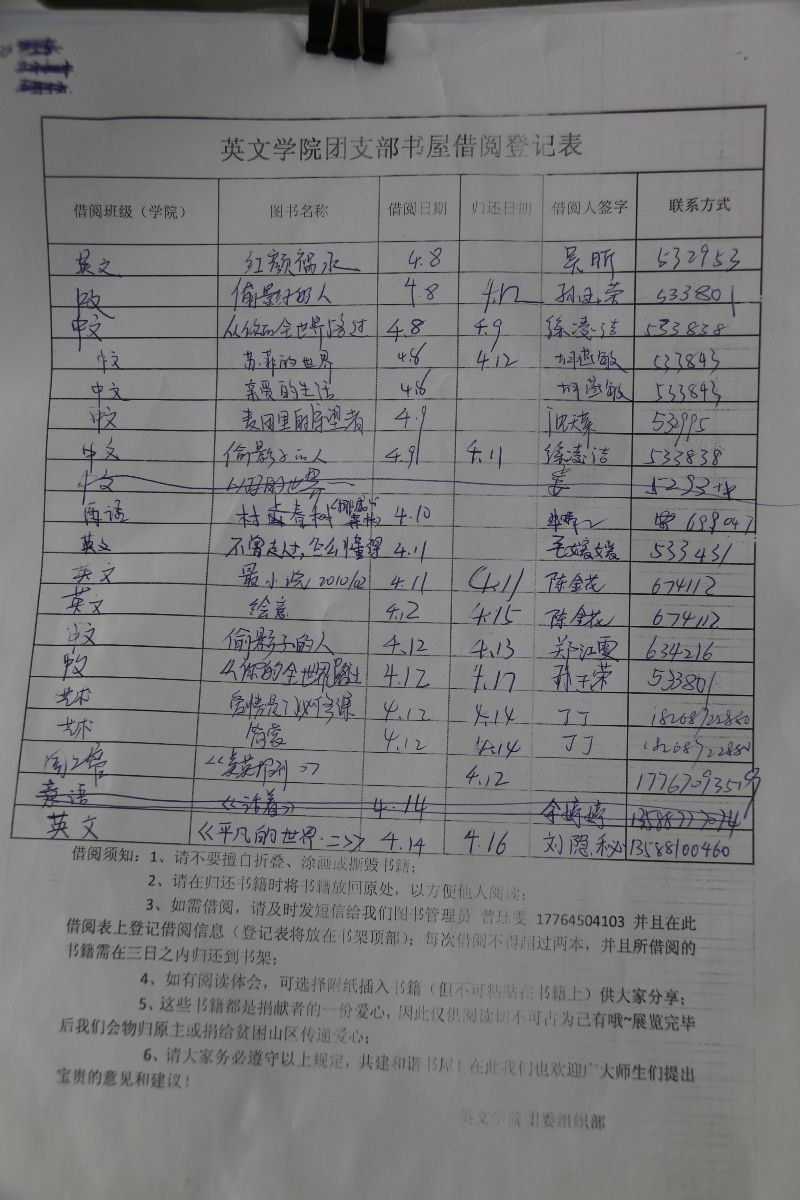 英文学院团支部书屋借阅登记表
借阅班级（学院） 图书名称 借阅日期 归还日期 借阅人签字 联系方式
英文 红颜祸水 4.8 吴昕 532953
偷影子的人 4.8 4.12 533801
中文 从你的全世界路过 4.8 4.9 徐凌洁 533838
中文 苏菲的世界 4.8 4.12 533843
中文 亲爱的生活 4.8 533843
中文 麦田里的守望者 4.9 53995
中文 偷影子的人 4.9 4.11 徐凌洁 533838
中文
西语 村上春树 4.10 699047
英文 不曾走过，怎么懂得 4.11 毛媛媛 533431
英文 最小说 2010/02 4.11 4.11 陈金花 674112
英文 绘意 4.12 4.15 陈金花 674112
中文 偷影子的人 4.12 4.13 郑江雯 634216
从你的全世界路过 4.12 4.17 533801
艺术 4.12 4.14 丁丁 18268922880
艺术 简爱 4.12 4.14 丁丁 18268922880
4.12
英语 《活着》 4.14 余婷婷
英文 《平凡的世界·二》 4.14 4.16 刘隐秘 13588100460
借阅须知：1、请不要擅自折叠、涂画或撕毁书籍；
2、请在归还书籍时将书籍放回原处，以方便他人阅读；
3、如需借阅，请及时发短信给我们图书管理员 曾珏雯 17764504103 并且在此
借阅表上登记借阅信息（登记表将放在书架顶部）；每次借阅不得超过两本，并且所借阅的
书籍需在三日之内归还到书架；
4、如有阅读体会，可选择附纸插入书籍（但不可粘贴在书籍上）供大家分享；
5、这些书籍都是捐献者的一份爱心，因此仅供阅读切不可占为己有哦~展览完毕
后我们会物归原主或捐给贫困山区传递爱心；
6、请大家务必遵守以上规定，共建和谐书屋！在此我们也欢迎广大师生们提出
宝贵的意见和建议！
英文学院团委组织部